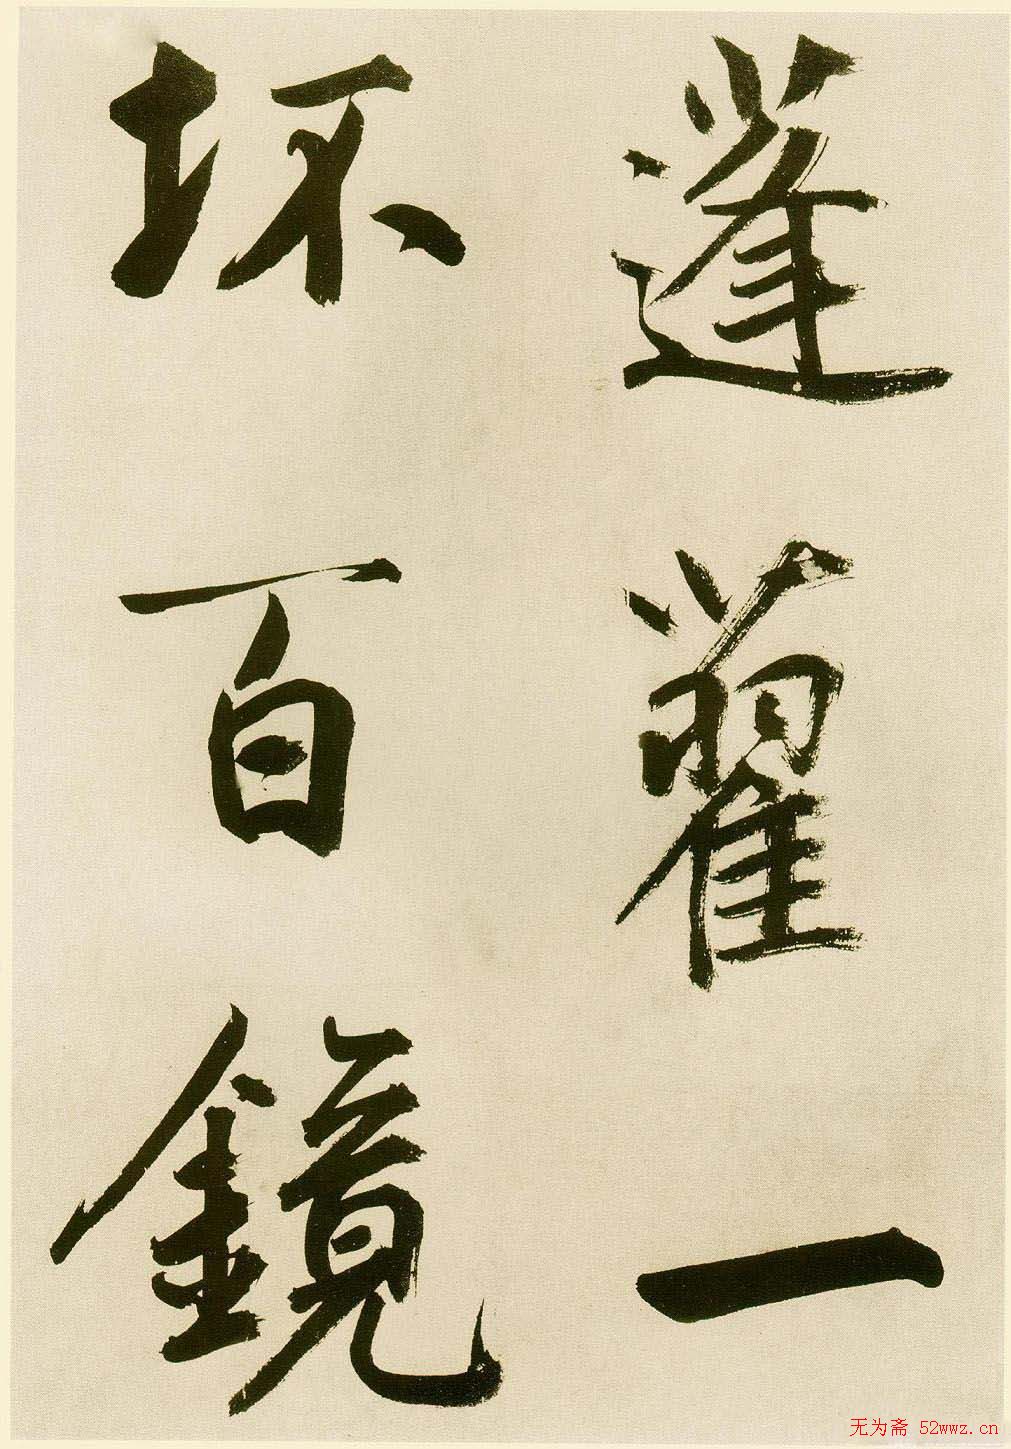 蓬藋一
坏百鏡
无为斋 52wwz.cn